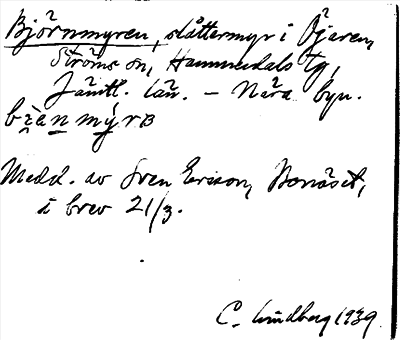 Björnmyren, slåttermyr i Öjaren,
Ströms sn, Hammerdals tg,
Jämtl. län. – Nära byn.
Medd. av Sven Ericson, Bonäset,
i brev 21/3.
C. Lindberg 1939.